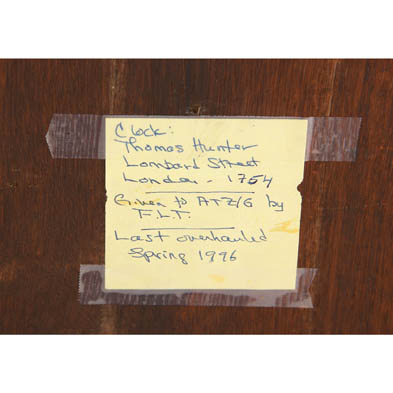 Clock:
Thomas Hunter
Lombard Street
London - 1754
Given to by
F.L.T.
Last overhauled
Spring 1996